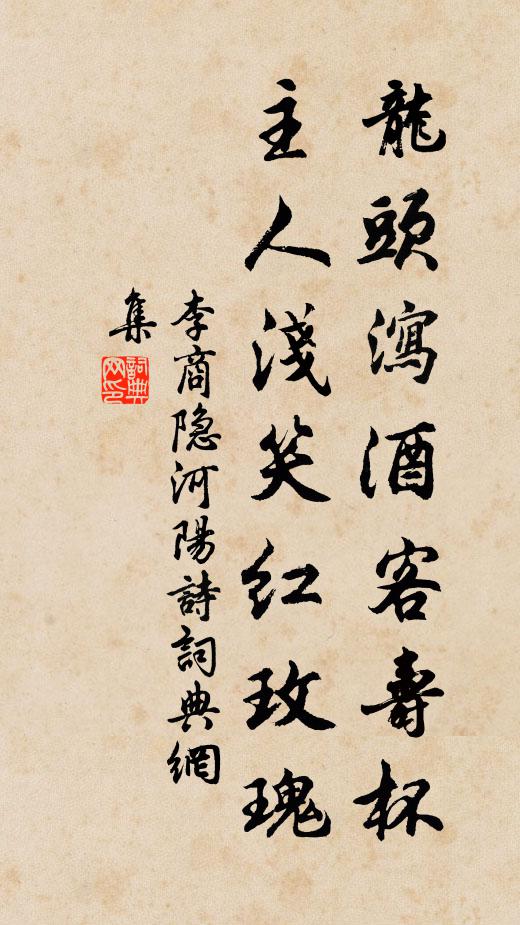 龍頭瀉酒客壽杯
主人淺笑红玫瑰
李商隐河陽詩詞典網
集
詞典網印